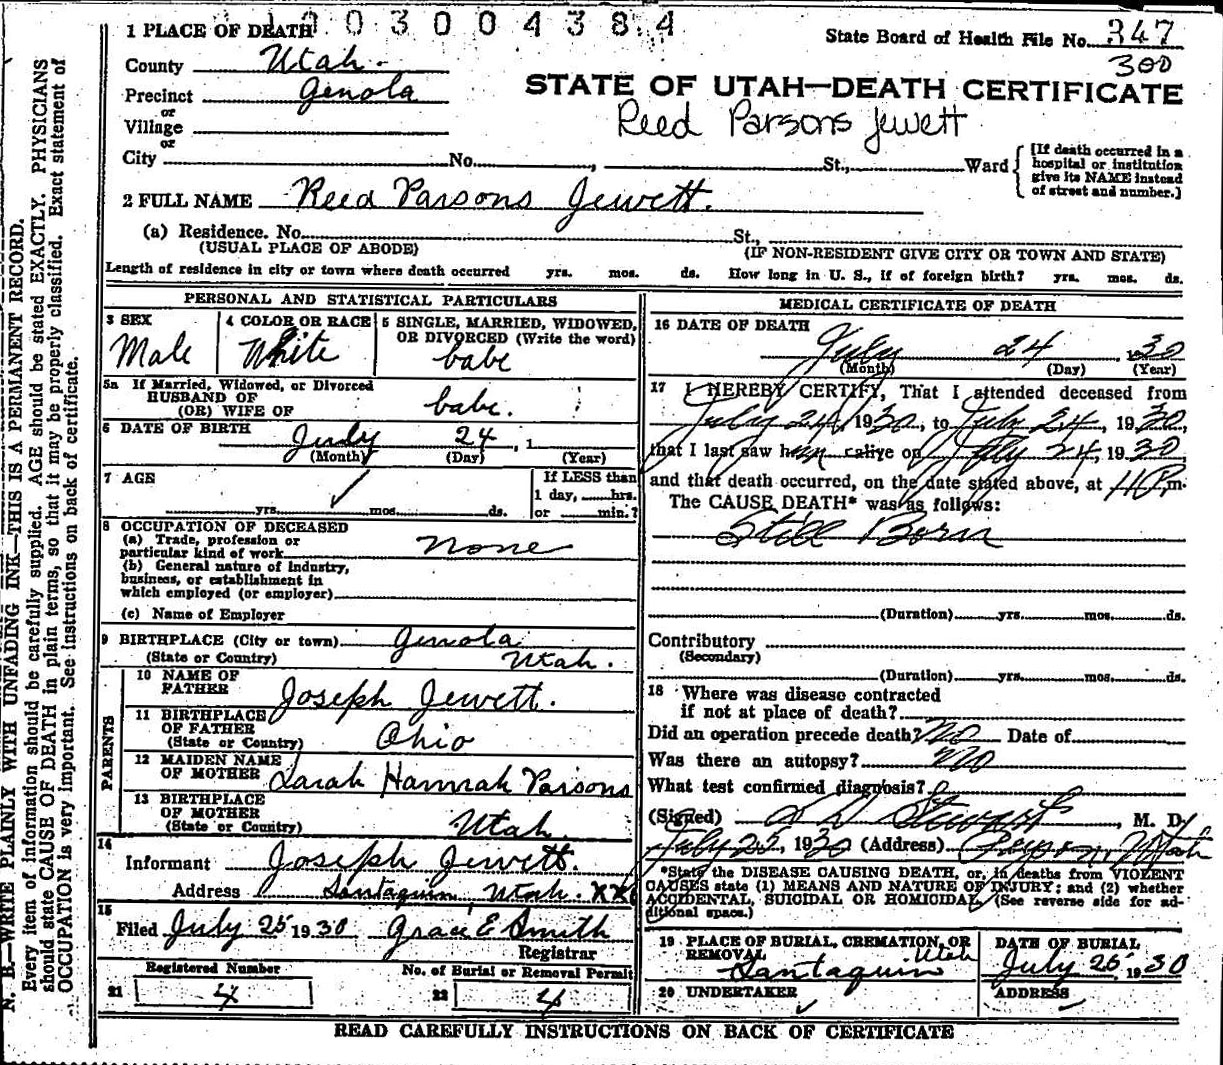 1003004384
1 PLACE OF DEATH
State Board of Health File No. 347
300
County Utah.
Precinct Genola
STATE OF UTAH—DEATH CERTIFICATE
or
Village
Reed Parsons Jewett
or
City No. , St., Ward
[If death occurred in a
hospital or institution
give its NAME instead
of street and number.]
2 FULL NAME Reed Parsons Jewett.
(a) Residence. No. St.,
(USUAL PLACE OF ABODE) (IF NON-RESIDENT GIVE CITY OR TOWN AND STATE)
Length of residence in city or town where death occurred yrs. mos. ds. How long in U. S., if of foreign birth? yrs. mos. ds.
PERSONAL AND STATISTICAL PARTICULARS
3 SEX
Male
4 COLOR OR RACE
White
5 SINGLE, MARRIED, WIDOWED,
OR DIVORCED (Write the word)
babe
5a If Married, Widowed, or Divorced
HUSBAND OF
(OR) WIFE OF babe.
6 DATE OF BIRTH
July 24, 1
(Month) (Day) (Year)
7 AGE
yrs. mos. ds.
If LESS than
1 day, hrs.
or min.?
8 OCCUPATION OF DECEASED
(a) Trade, profession or
particular kind of work none
(b) General nature of industry,
business, or establishment in
which employed (or employer)
(c) Name of Employer
9 BIRTHPLACE (City or town) Genola
(State or Country) Utah.
PARENTS
10 NAME OF
FATHER Joseph Jewett.
11 BIRTHPLACE
OF FATHER
(State or Country) Ohio
12 MAIDEN NAME
OF MOTHER Sarah Hannah Parsons
13 BIRTHPLACE
OF MOTHER
(State or Country) Utah.
14
Informant Joseph Jewett.
Address Santaquin Utah. XX
15
Filed July 25 1930 Grace E Smith
Registrar
Registered Number
21 4
No. of Burial or Removal Permit
22 4
MEDICAL CERTIFICATE OF DEATH
16 DATE OF DEATH
July 24, 1930
(Month) (Day) (Year)
17 I HEREBY CERTIFY, That I attended deceased from
July 24, 1930, to July 24, 1930,
that I last saw him alive on July 24, 1930
and that death occurred, on the date stated above, at 4 P m.
The CAUSE DEATH* was as follows:
Still Born
(Duration) yrs. mos. ds.
Contributory
(Secondary)
(Duration) yrs. mos. ds.
18 Where was disease contracted
if not at place of death?
Did an operation precede death? No Date of
Was there an autopsy? No
What test confirmed diagnosis?
(Signed) L D Stewart, M. D.
July 25, 1930 (Address) Payson, Utah
*State the DISEASE CAUSING DEATH, or, in deaths from VIOLENT
CAUSES state (1) MEANS AND NATURE OF INJURY; and (2) whether
ACCIDENTAL, SUICIDAL OR HOMICIDAL. (See reverse side for ad-
ditional space.)
19 PLACE OF BURIAL, CREMATION, OR
REMOVAL Utah
Santaquin
DATE OF BURIAL
July 25 1930
20 UNDERTAKER
ADDRESS
READ CAREFULLY INSTRUCTIONS ON BACK OF CERTIFICATE
N. B.—WRITE PLAINLY WITH UNFADING INK—THIS IS A PERMANENT RECORD.
Every item of information should be carefully supplied. AGE should be stated EXACTLY. PHYSICIANS
should state CAUSE OF DEATH in plain terms, so that it may be properly classified. Exact statement of
OCCUPATION is very important. See instructions on back of certificate.